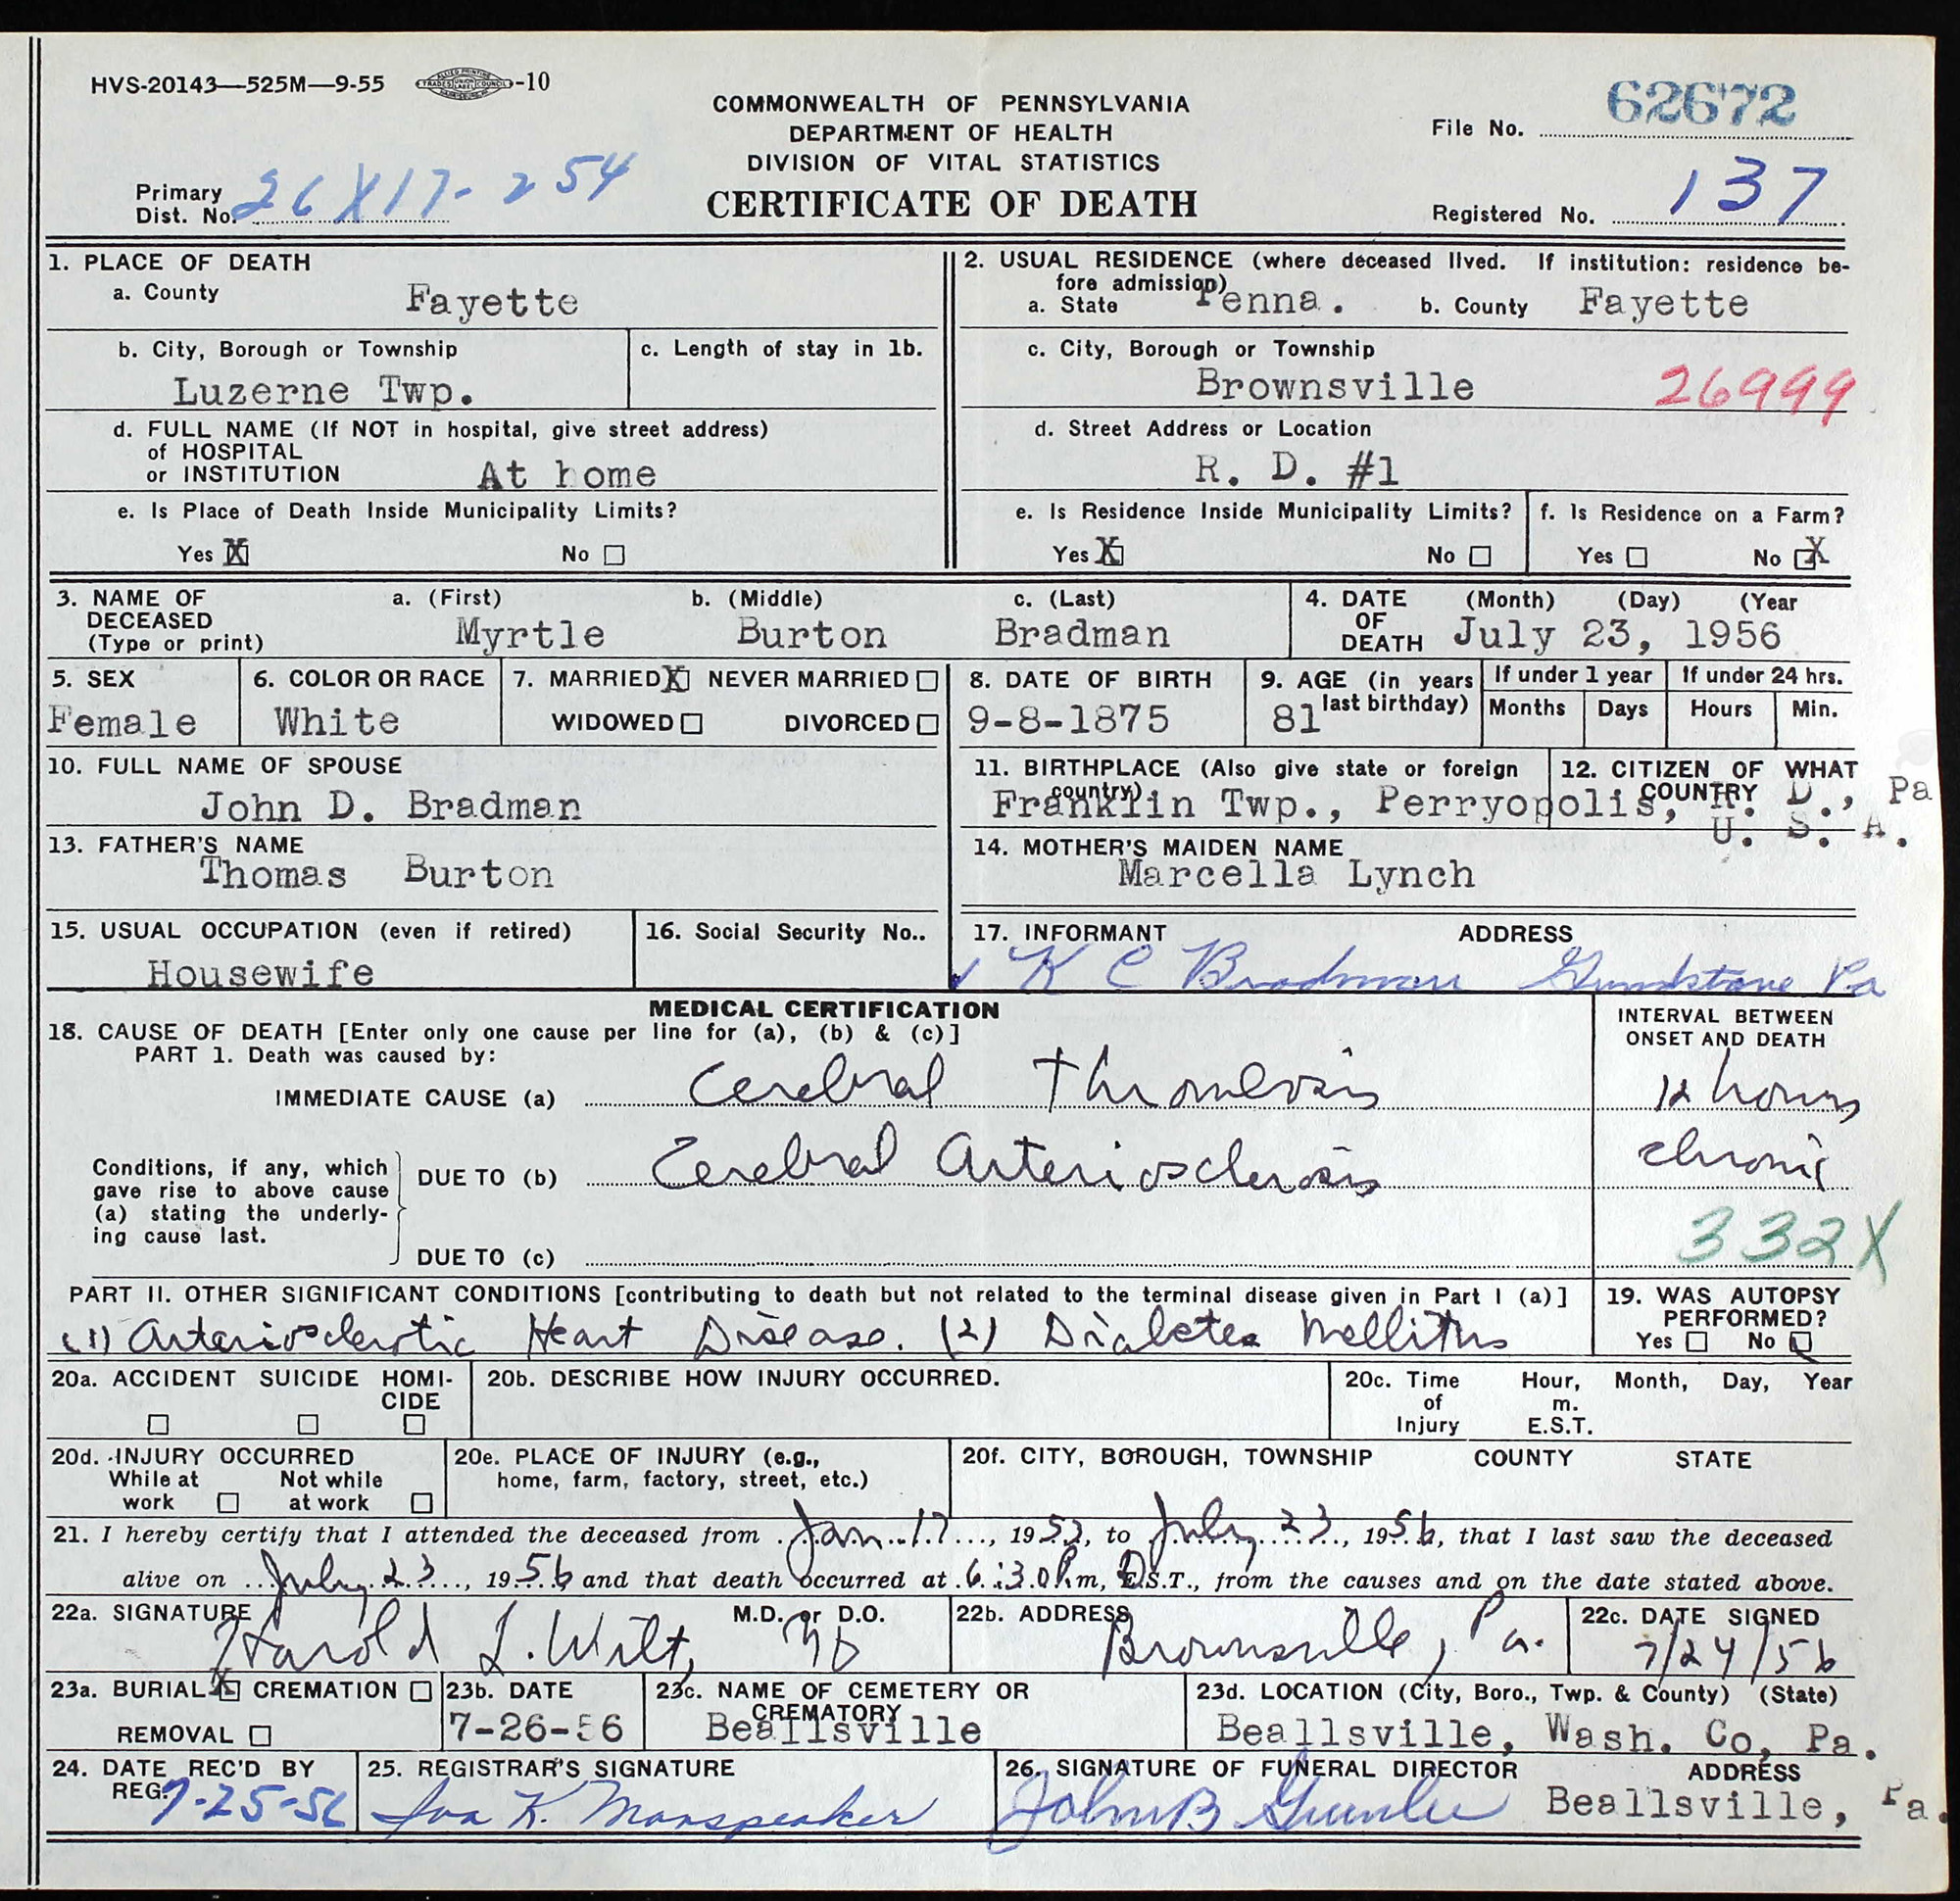 HVS-20143—525M—9-55 -10
COMMONWEALTH OF PENNSYLVANIA
DEPARTMENT OF HEALTH
DIVISION OF VITAL STATISTICS
CERTIFICATE OF DEATH
File No. 62672
Primary Dist. No. 26X17-254
Registered No. 137
1. PLACE OF DEATH
a. County Fayette
2. USUAL RESIDENCE (where deceased lived. If institution: residence be-
fore admission)
a. State Penna. b. County Fayette
b. City, Borough or Township
Luzerne Twp.
c. Length of stay in 1b.
c. City, Borough or Township
Brownsville 26999
d. FULL NAME (If NOT in hospital, give street address)
of HOSPITAL
or INSTITUTION At home
d. Street Address or Location
R. D. #1
e. Is Place of Death Inside Municipality Limits?
Yes X No
e. Is Residence Inside Municipality Limits?
Yes X No
f. Is Residence on a Farm?
Yes No X
3. NAME OF DECEASED (Type or print)
a. (First) b. (Middle) c. (Last)
Myrtle Burton Bradman
4. DATE OF DEATH (Month) (Day) (Year
July 23, 1956
5. SEX
Female
6. COLOR OR RACE
White
7. MARRIED X NEVER MARRIED
WIDOWED DIVORCED
8. DATE OF BIRTH
9-8-1875
9. AGE (in years last birthday)
81
If under 1 year
Months Days
If under 24 hrs.
Hours Min.
10. FULL NAME OF SPOUSE
John D. Bradman
11. BIRTHPLACE (Also give state or foreign country)
Franklin Twp., Perryopolis, R. D., Pa
12. CITIZEN OF WHAT COUNTRY
U. S. A.
13. FATHER'S NAME
Thomas Burton
14. MOTHER'S MAIDEN NAME
Marcella Lynch
15. USUAL OCCUPATION (even if retired)
Housewife
16. Social Security No..
17. INFORMANT ADDRESS
K C Bradman Grindstone Pa
MEDICAL CERTIFICATION
18. CAUSE OF DEATH [Enter only one cause per line for (a), (b) & (c)]
PART 1. Death was caused by:
INTERVAL BETWEEN
ONSET AND DEATH
IMMEDIATE CAUSE (a) Cerebral Thrombosis 12 hours
Conditions, if any, which
gave rise to above cause
(a) stating the underly-
ing cause last.
DUE TO (b) Cerebral Arteriosclerosis chronic
DUE TO (c)
332X
PART II. OTHER SIGNIFICANT CONDITIONS [contributing to death but not related to the terminal disease given in Part I (a)]
(1) Arteriosclerotic Heart Disease. (2) Diabetes Mellitus
19. WAS AUTOPSY PERFORMED?
Yes No
20a. ACCIDENT SUICIDE HOMI-
CIDE
20b. DESCRIBE HOW INJURY OCCURRED.
20c. Time of Injury Hour, m. E.S.T. Month, Day, Year
20d. INJURY OCCURRED
While at work Not while at work
20e. PLACE OF INJURY (e.g.,
home, farm, factory, street, etc.)
20f. CITY, BOROUGH, TOWNSHIP COUNTY STATE
21. I hereby certify that I attended the deceased from Jan. 17, 1953, to July 23, 1956, that I last saw the deceased
alive on July 23, 1956 and that death occurred at 6:30 P.m, D.S.T., from the causes and on the date stated above.
22a. SIGNATURE M.D. or D.O.
Harold L. Wilt, MD
22b. ADDRESS
Brownsville, Pa.
22c. DATE SIGNED
7/24/56
23a. BURIAL X CREMATION
REMOVAL
23b. DATE
7-26-56
23c. NAME OF CEMETERY OR CREMATORY
Beallsville
23d. LOCATION (City, Boro., Twp. & County) (State)
Beallsville, Wash. Co, Pa.
24. DATE REC'D BY REG.
7-25-56
25. REGISTRAR'S SIGNATURE
Iva K. Manspeaker
26. SIGNATURE OF FUNERAL DIRECTOR ADDRESS
John B Beallsville, Pa.